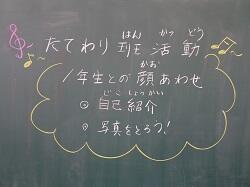 たてわり班活動
はんかつどう
1年生との顔あわせ
かお
◎自己紹介
じこしょうかい
◎写真をとろう!